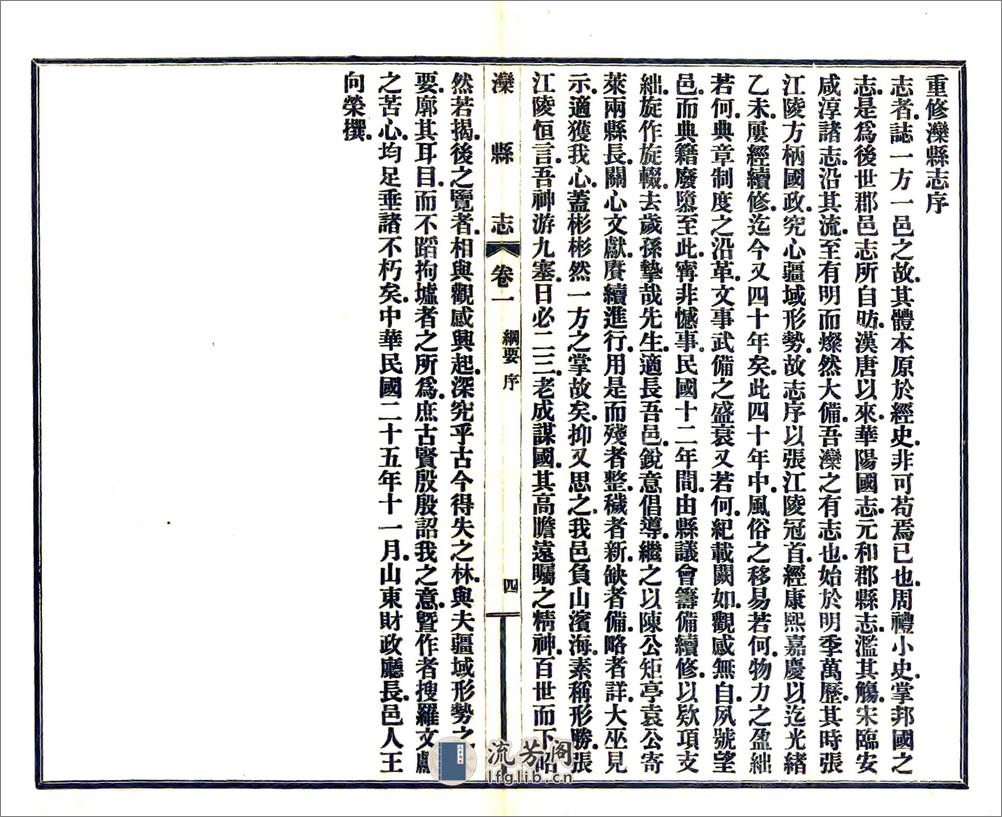 重修灤縣志序
志者誌一方一邑之故其體本原於經史非可苟焉已也周禮小史掌邦國之
志是爲後世郡邑志所自昉漢唐以來華陽國志元和郡縣志濫其觴宋臨安
咸淳諸志沿其流至有明而燦然大備吾灤之有志也始於明季萬歷其時張
江陵方柄國政究心疆域形勢故志序以張江陵冠首經康熙嘉慶以迄光緒
乙未屢經續修迄今又四十年矣此四十年中風俗之移易若何物力之盈絀
若何典章制度之沿革文事武備之盛衰又若何紀載闕如觀感無自夙號望
邑而典籍廢隳至此甯非憾事民國十二年間由縣議會籌備續修以欵項支
絀旋作旋輟去歲孫蟄哉先生適長吾邑銳意倡導繼之以陳公矩亭袁公寄
萊兩縣長關心文獻賡續進行用是而殘者整穢者新缺者備略者詳大巫見
示適獲我心蓋彬彬然一方之掌故矣抑又思之我邑負山濱海素稱形勝張
江陵恒言吾神游九塞日必二三老成謀國其高瞻遠矚之精神百世而下昭
灤縣志 卷一 綱要 序 四
然若揭後之覽者相與觀感興起深究乎古今得失之林與夫疆域形勢之
要廓其耳目而不蹈拘墟者之所爲庶古賢殷殷詔我之意曁作者搜羅文獻
之苦心均足垂諸不朽矣中華民國二十五年十一月山東財政廳長邑人王
向榮撰
流芳阁
lfglib.cn